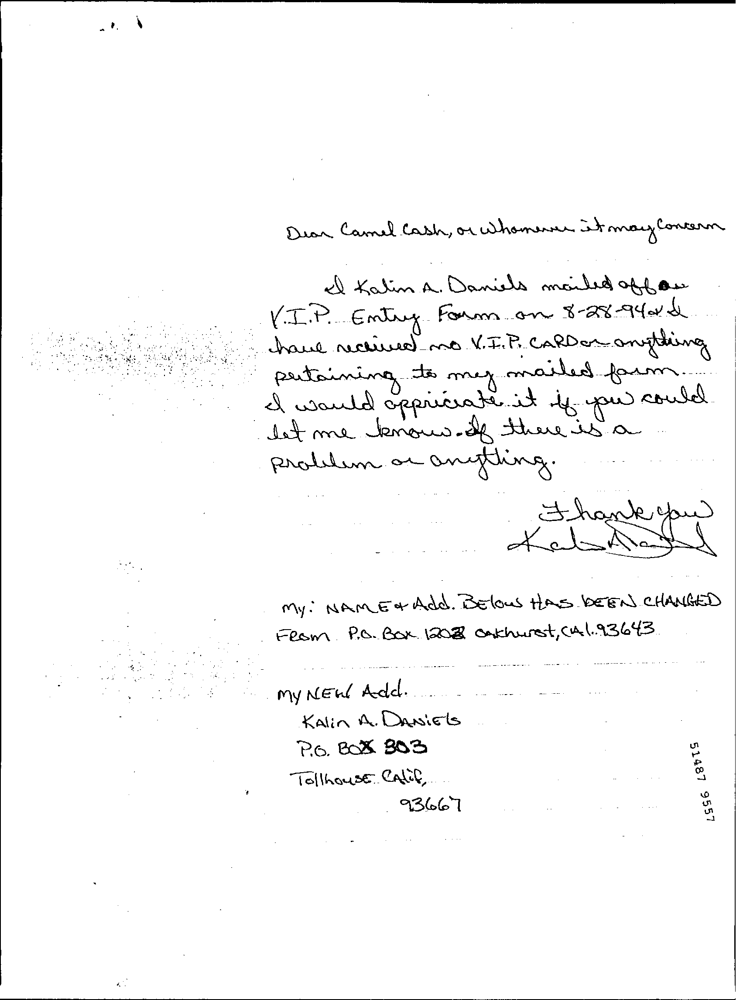 Dear Camel Cash, or whomever it may Concern
I Kalin A. Daniels mailed off an
V.I.P. Entry Form on 8-28-94 & I
have received no V.I.P. CARD or anything
pertaining to my mailed form.
I would appriciate it if you could
let me know if there is a
problem or anything.
Thank you
My: NAME & Add. BElow HAS bEEN CHANGED
FROM P.O. Box 1202 Oakhurst, CAl. 93643
My NEW Add.
KAlin A. DANiEls
P.O. BOX 303
TollhousE Calif,
93667
51487 9557